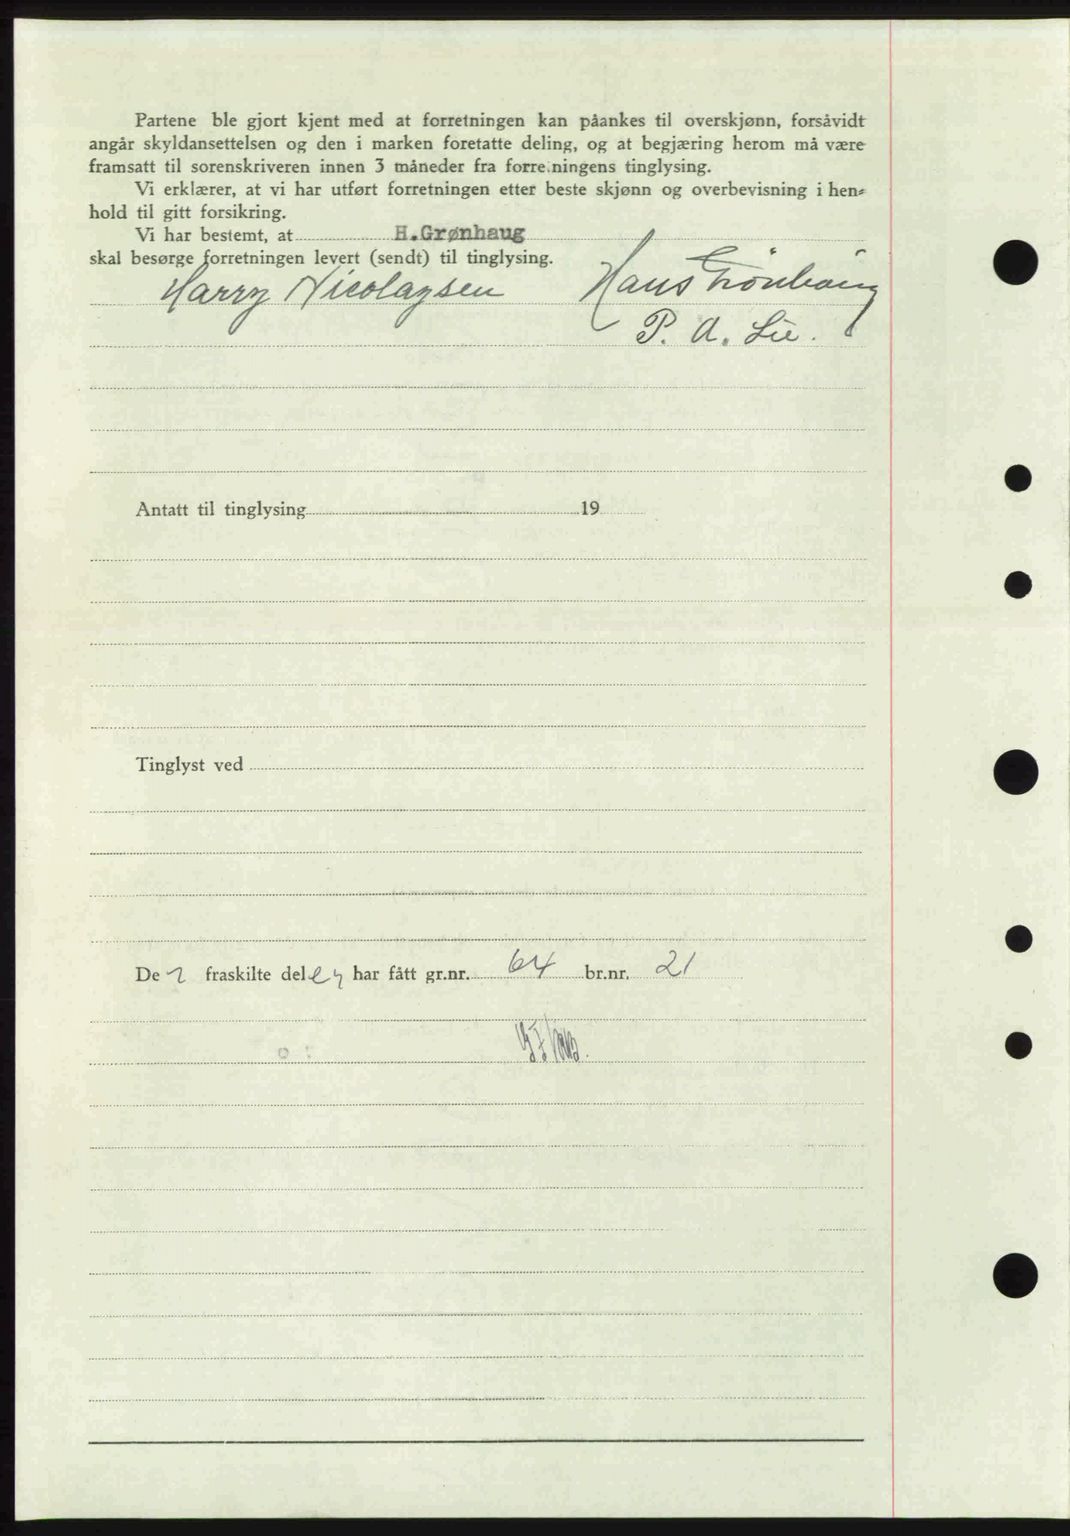 Partene ble gjort kjent med at forretningen kan påankes til overskjønn, forsåvidt
angår skyldansettelsen og den i marken foretatte deling, og at begjæring herom må være
framsatt til sorenskriveren innen 3 måneder fra forre.ningens tinglysing.
Vi erklærer, at vi har utført forretningen etter beste skjønn og overbevisning i hen-
hold til gitt forsikring.
Vi har bestemt, at H.Grønhaug
skal besørge forretningen levert (sendt) til tinglysing.
Harry Nicolaysen Hans Grønhaug
P. A. Lie.
Antatt til tinglysing 19
Tinglyst ved
De n fraskilte delen har fått gr.nr. 64 br.nr. 21